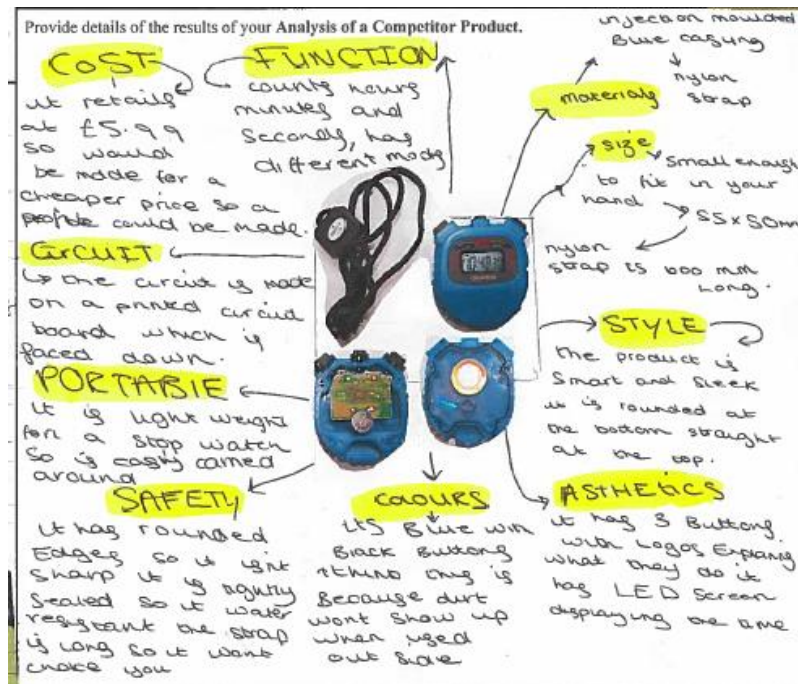 Provide details of the results of your Analysis of a Competitor Product.
COST
it retails
at £5.99
so would
be made for a
cheaper price so a
could be made.
FUNCTION
counts hours
minutes and
seconds, has
different mods
materials
injection moulded
Blue casing
nylon
strap
size
small enough
to fit in your
hand
55 x 50mm
nylon
strap is mm
long.
CIRCUIT
the circuit is made
on a printed circuit
board which is
faced down.
PORTABLE
It is light weight
for a stop watch
so is easily carried
around
STYLE
the product is
Smart and sleek
it is rounded at
the bottom straight
at the top.
SAFETY
it has rounded
Edges so it isnt
sharp it is tightly
sealed so it water
resistant the strap
is long so it wont
choke you
COLOURS
its Blue with
Black Buttons
i think this is
Because dirt
wont show up
when used
out side
ASTHETICS
it has 3 Buttons
with Logos Explaining
what they do it
has LED Screen
displaying the time